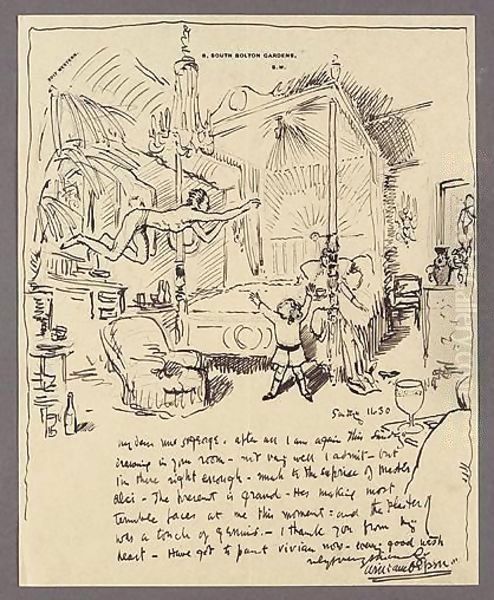 8, SOUTH BOLTON GARDENS,
S.W.
Sunday 11.30
my dear Mrs StGeorge. after all I am again this Sunday
drawing in your room – not very well I admit – but
I'm there right enough – much to the surprise of Master
The present is grand – Hes making most
terrible faces at me this moment: and the
was a touch of Genius. – I thank you from my
heart – Have got to paint vivian now – every good wish
William Orpen